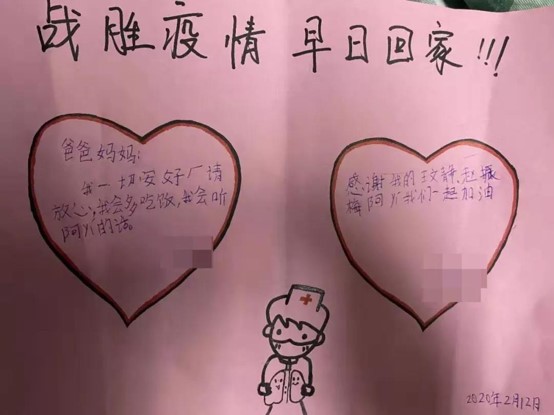 战胜疫情 早日回家!!!
爸爸妈妈:
我一切安好,请
放心,我会多吃饭,我会听
阿姨的话。
感谢我的王文静、赵振
梅阿姨我们一起加油
2020年2月12日